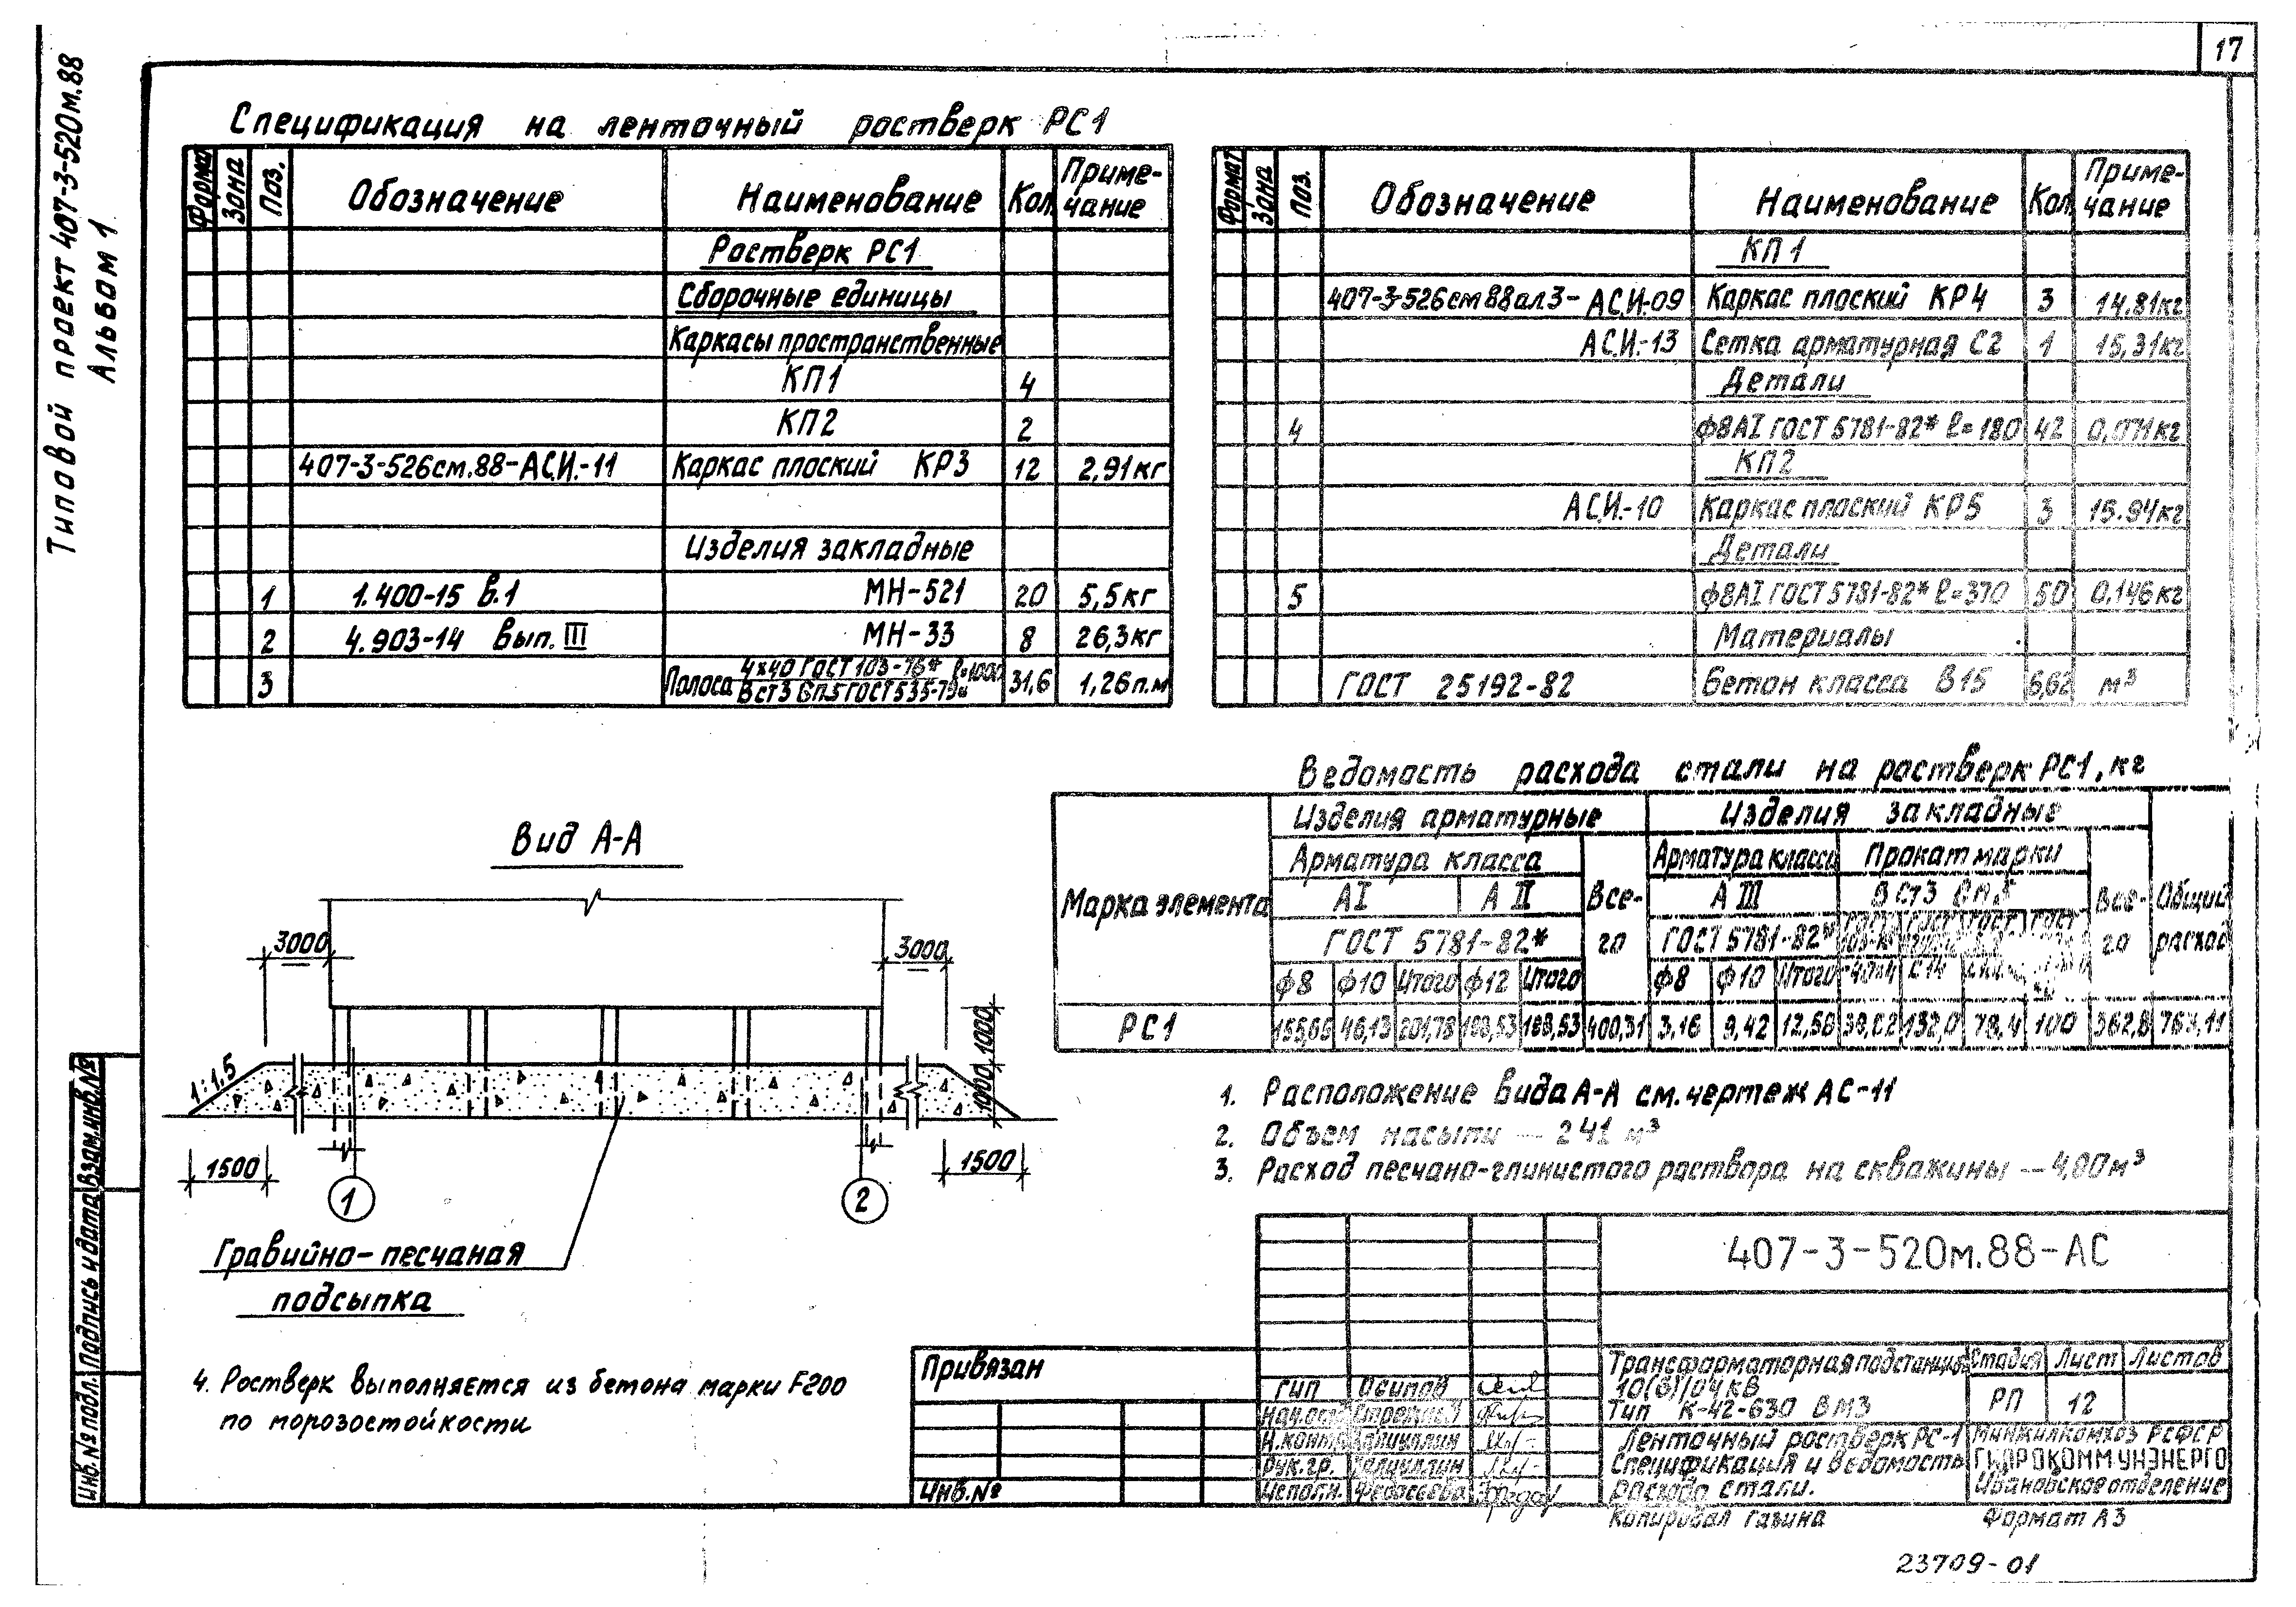 17
Типовой проект 407-3-520м.88
Альбом 1
Спецификация на ленточный ростверк РС1
Формат Зона Поз. Обозначение Наименование Кол. Приме-чание
Ростверк РС1
Сборочные единицы
Каркасы пространственные
КП1 4
КП2 2
407-3-526см.88-АС.И.-11 Каркас плоский КР3 12 2,91кг
Изделия закладные
1 1.400-15 в.1 МН-521 20 5,5кг
2 4.903-14 Вып. III МН-33 8 26,3кг
3 Полоса 4х40 ГОСТ 103-76* ℓ=1000 31,6 1,26п.м
ВСт3 сп.5 ГОСТ 535-79*
Формат Зона Поз. Обозначение Наименование Кол. Приме-чание
КП1
407-3-526см88ал3-АС.И.-09 Каркас плоский КР4 3 14.81кг
АС.И.-13 Сетка арматурная С2 1 15,31кг
Детали
4 ф8АI ГОСТ 5781-82* ℓ=180 42 0,071кг
КП2
АС.И.-10 Каркас плоский КР5 3 15.94кг
Детали
5 ф8АI ГОСТ 5781-82* ℓ=370 50 0,146кг
Материалы
ГОСТ 25192-82 Бетон класса В15 6,62 м³
Ведомость расхода стали на ростверк РС1, кг
Марка элемента Изделия арматурные Изделия закладные Общий расход
Арматура класса Все-го Арматура класса Прокат марки Все-го
АI АII АIII ВСт3 сп.5
ГОСТ 5781-82* ГОСТ 5781-82*
ф8 ф10 Итого ф12 Итого ф8 ф10 Итого -40×4 С14
РС1 155,65 46,13 201,78 198,53 198,53 400,31 3,16 9,42 12,58 132,0 78,4 100 362,8 763,11
Вид А-А
3000 3000
1000 1000
1:1.5
1500 1500
1 2
Гравийно-песчаная
подсыпка
1. Расположение вида А-А см. чертеж АС-11
2. Объем насыпи — 241 м³
3. Расход песчано-глинистого раствора на скважины — 4,80м³
4. Ростверк выполняется из бетона марки F200
по морозостойкости
Инв.№ подл. Подпись и дата Взам.инв.№
Привязан
Инв.№
407-3-520м.88-АС
ГИП Осипов
Нач.отд.
Н.контр.
Рук.гр.
Исполн. Федосеева
Трансформаторная подстанция
10(6)/0,4кВ
Тип К-42-630 ВМЗ
Стадия Лист Листов
РП 12
Ленточный ростверк РС-1
Спецификация и ведомость
расхода стали.
Минжилкомхоз РСФСР
ГИПРОКОММУНЭНЕРГО
Ивановское отделение
Копировал Газина Формат А3
23709-01